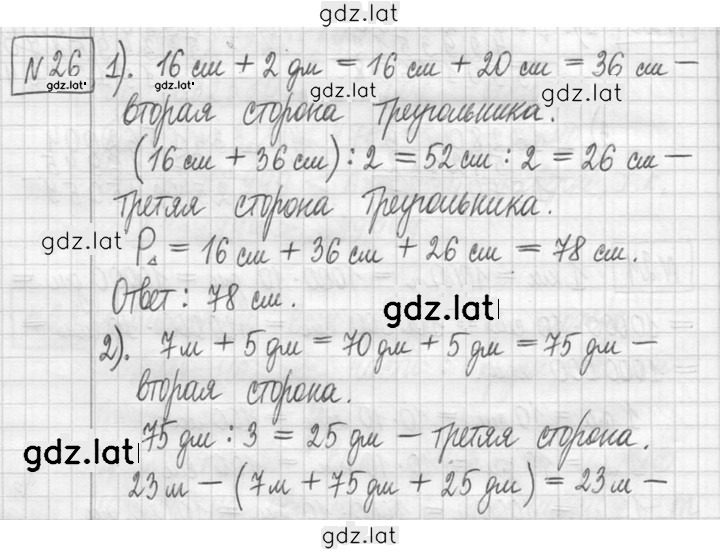 gdz.lat
№ 26 1). 16 см + 2 дм = 16 см + 20 см = 36 см –
gdz.lat gdz.lat gdz.lat gdz.lat
вторая сторона треугольника.
(16 см + 36 см) : 2 = 52 см : 2 = 26 см –
третяя сторона треугольника.
gdz.lat P△ = 16 см + 36 см + 26 см = 78 см.
Ответ: 78 см. gdz.lat
2). 7 м + 5 дм = 70 дм + 5 дм = 75 дм –
вторая сторона.
gdz.lat 75 дм : 3 = 25 дм – третяя сторона.
23 м – (7 м + 75 дм + 25 дм) = 23 м –
gdz.lat